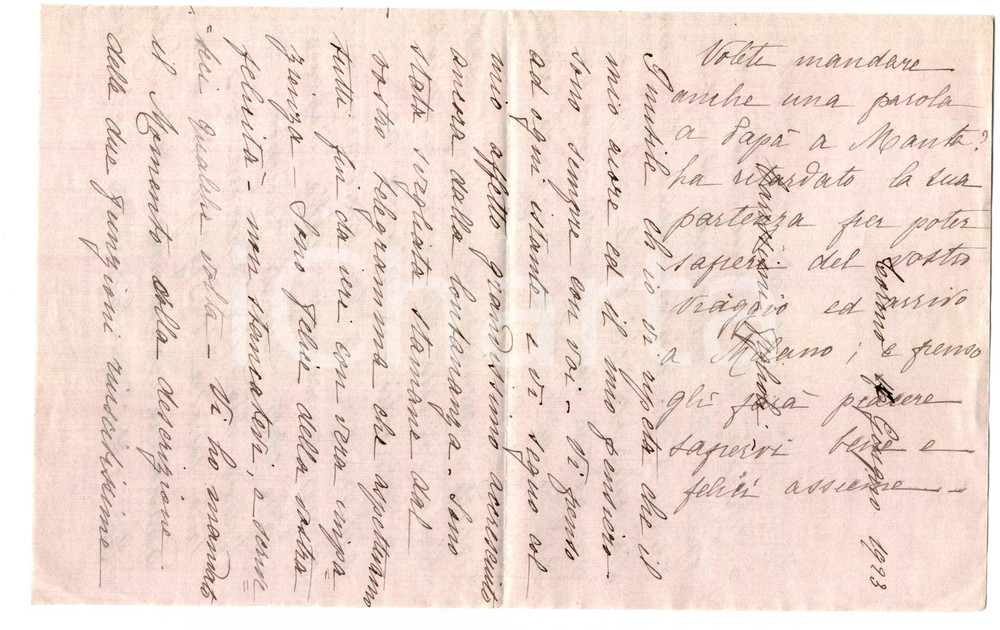 Volete mandare
anche una parola
a Papà a Manta?
ha ritardato la sua
partenza per poter
saperi del vostro
viaggio ed arrivo
a Milano; e penso
gli farà piacere
sapervi bene e
felici assieme
Torino Giugno 1923
Inutile ch'io vi ripeta che il
mio cuore ed il mio pensiero
sono sempre con voi. Vi penso
ad ogni istante e vi seguo col
mio affetto grandissimo accresciuto
ancora dalla lontananza. Sono
stata svegliata stamane dal
vostro telegramma che aspettavamo
tutti fin da ieri con vera impa=
zienza. Sono felice della vostra
felicità - non stancatevi, e scrive=
temi qualche volta. Vi ho mandato
il Momento colla descrizione
delle due funzioni riuscitissime
iCharta